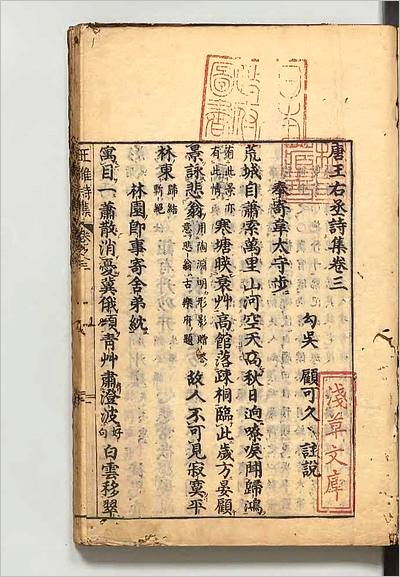 唐王右丞詩集卷三
勾吳 顧可久 註說
奉寄韋太守陟
荒城自蕭索萬里山河空天高秋日迥嘹唳聞歸鴻
寒塘映衰艸高館落疎桐臨此歲方晏顧
景詠悲翁
故人不可見寂寞平
林東
林園即事寄舍弟紞
寓目一蕭散消憂冀俄頃青艸肅澄波
白雲移翠
王維詩集
卷之三
淺草文庫
圖書